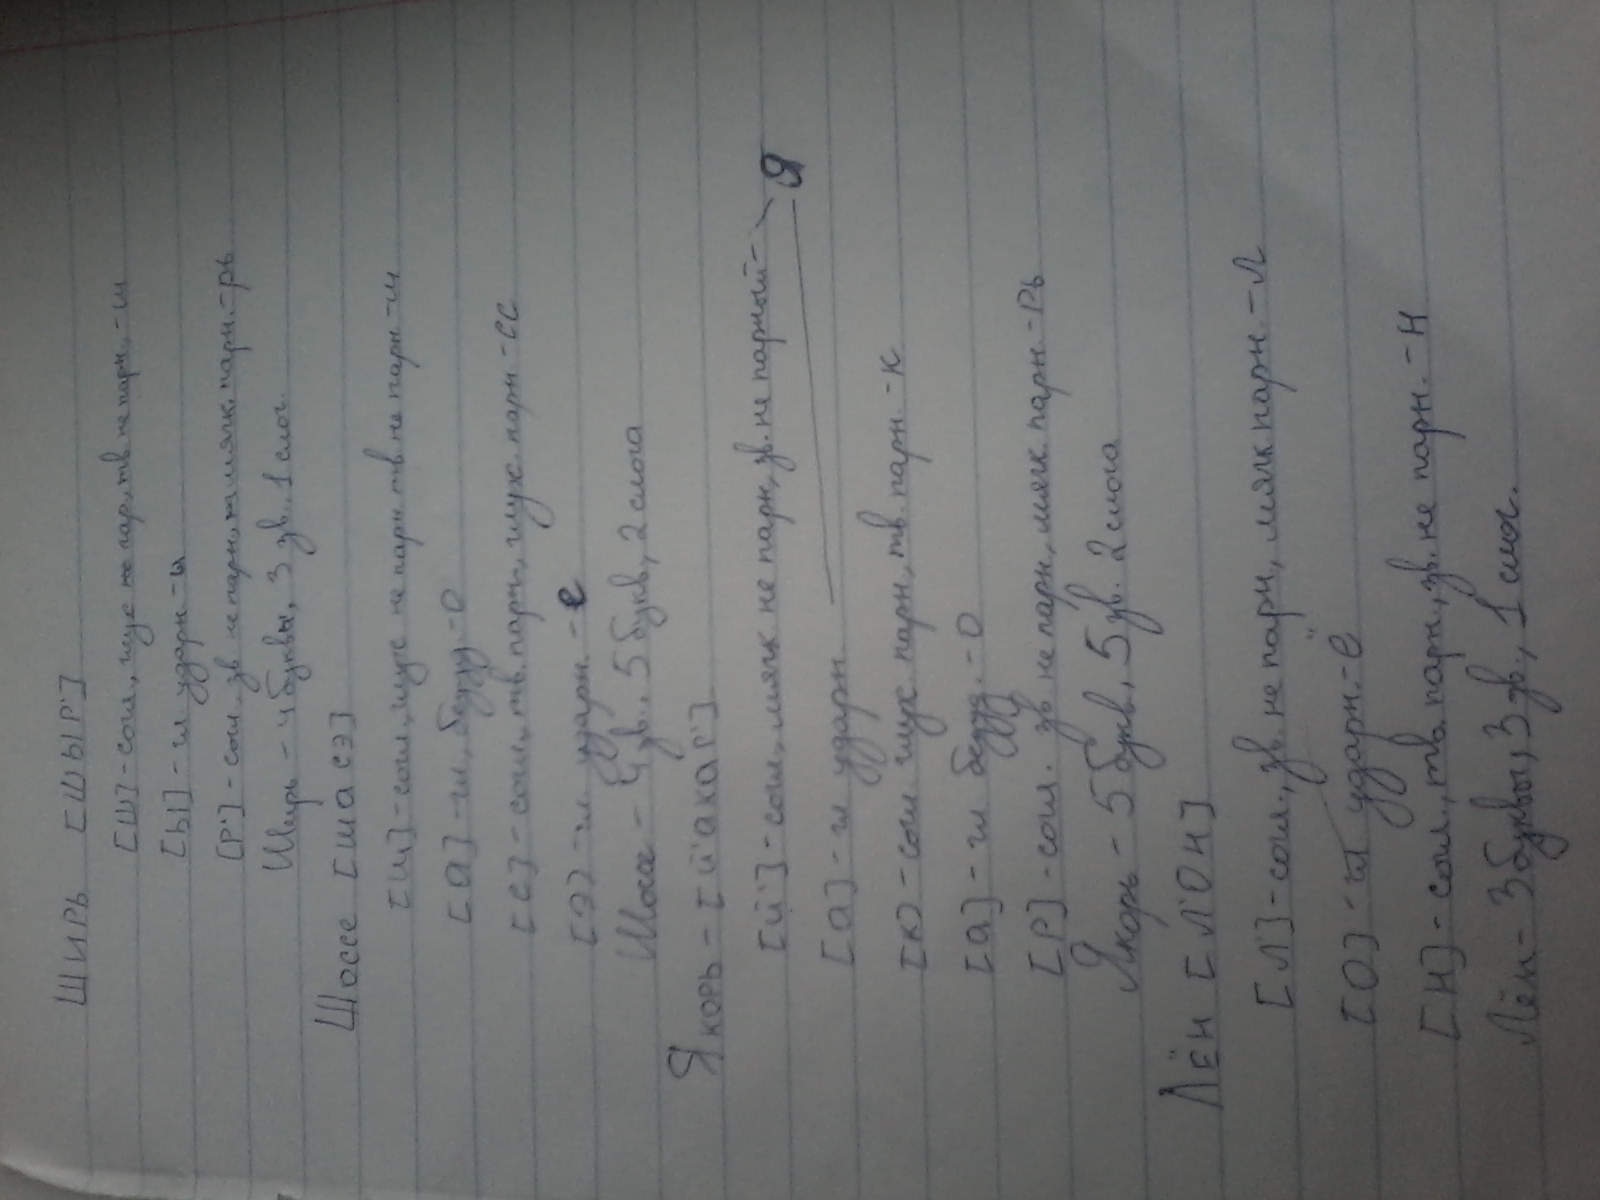 ШИРЬ [ШЫР']
[Ш]-согл, глух не пар, тв. не парн.-ш
[Ы]-гл ударн-и
[Р']-согл. зв не парн, мягк. парн.-рь
Ширь-4 буквы, 3 зв., 1 слог.
Шоссе [ШАСЭ]
[Ш]-согл, глух не парн тв. не парн-ш
[А]-гл, безуд.-О
[С]-согл, тв. парн, глух. парн-сс
[Э]-гл ударн.-е
Шоссе-4 зв., 5 букв, 2 слога
Якорь-[Й'АКАР']
[Й']-согл, мягк не парн, зв. не парный-я
[А]-гл ударн
[К]-согл глух парн, тв. парн-К
[А]-гл безуд.-О
[Р]-согл. зв не парн, мягк парн-Рь
Якорь-5 букв, 5 зв. 2 слога
ЛЁН [Л'ОН]
[Л']-согл., зв. не парн, мягк парн.-Л
[О]-гл ударн-ё
[Н]-согл, тв. парн, зв. не парн.-Н
Лён-3 буквы, 3 зв., 1 слог.